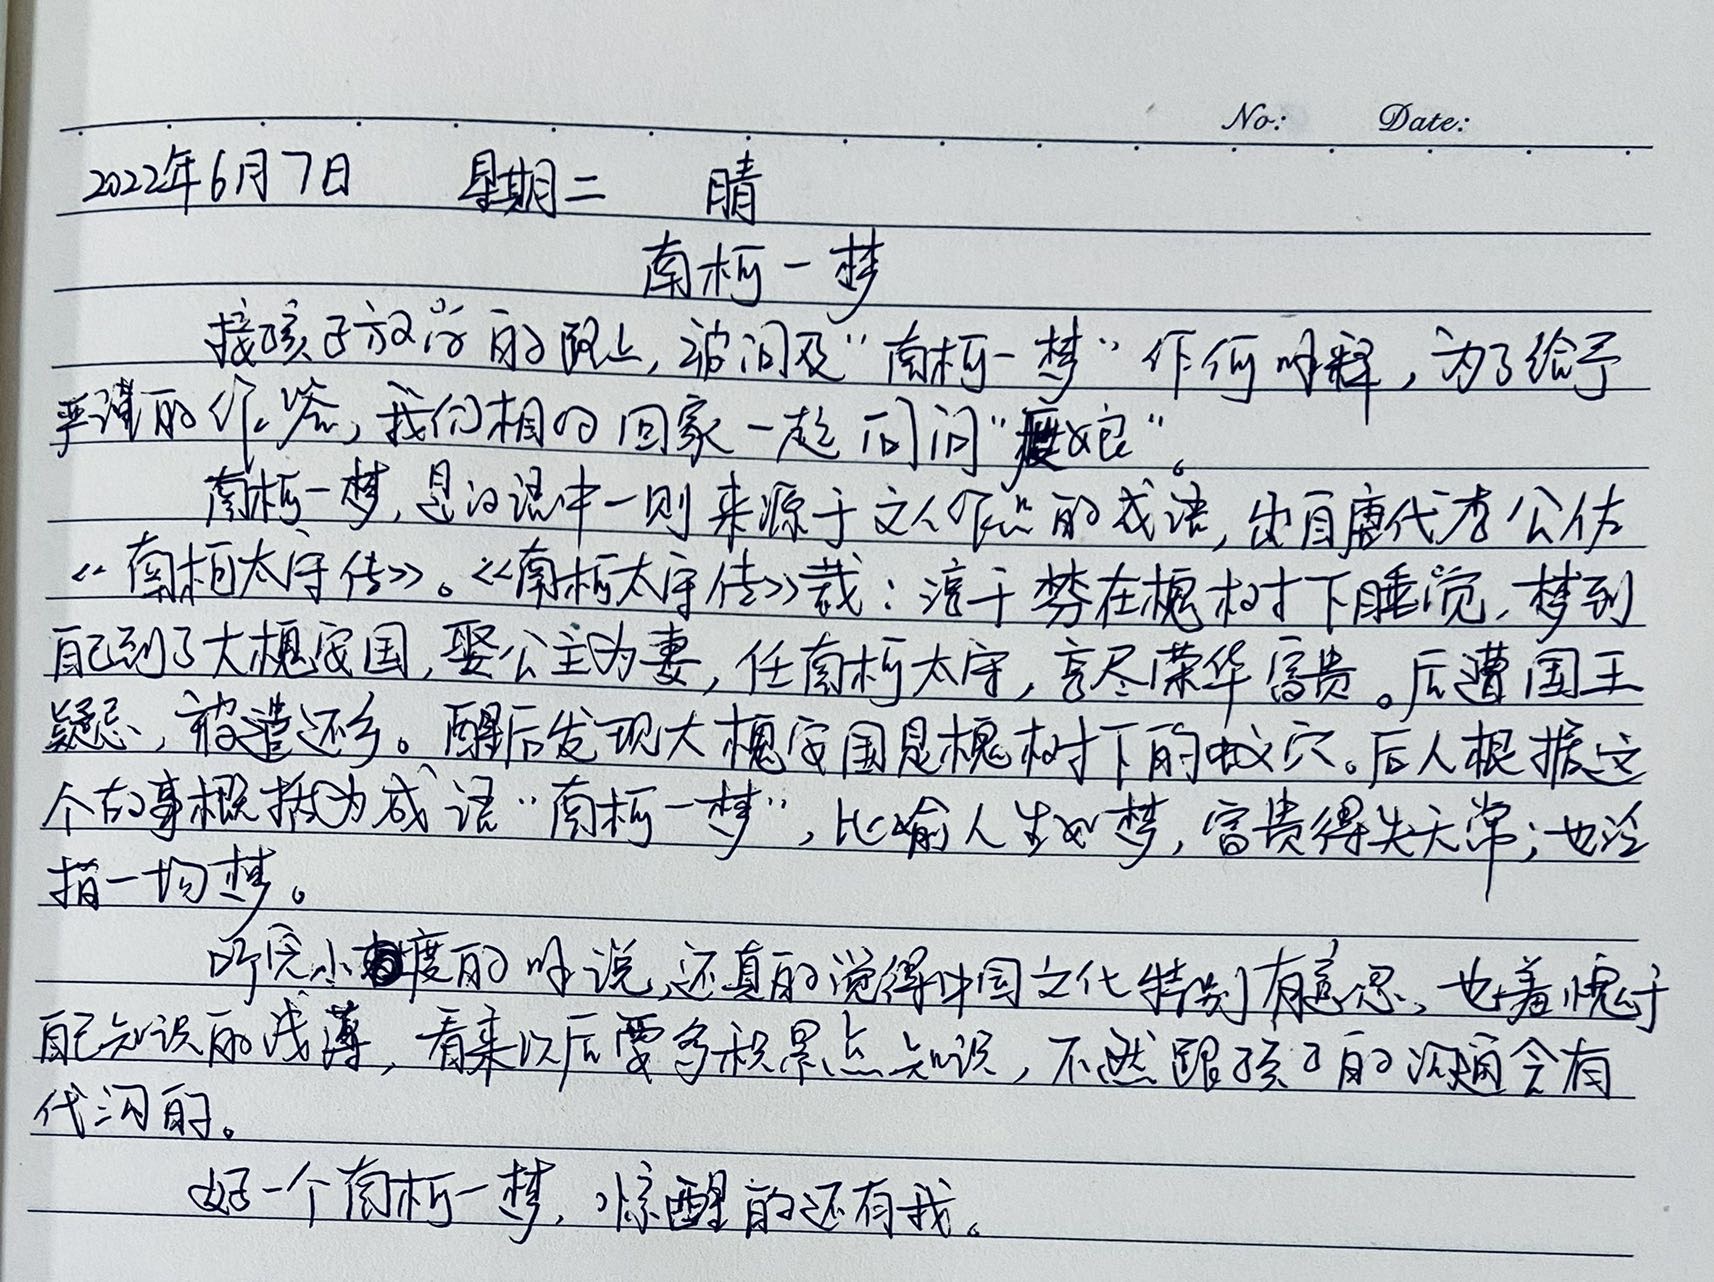 No: Date:
2022年6月7日 星期二 晴
南柯一梦
接孩子放学的路上,被问及“南柯一梦”作何解释,为了给予
严谨的作答,我们相约回家一起问问“度娘”。
南柯一梦,是汉语中一则来源于文人作品的成语,出自唐代李公佐
《南柯太守传》。《南柯太守传》载:淳于棼在槐树下睡觉,梦到
自己到了大槐安国,娶公主为妻,任南柯太守,享尽荣华富贵。后遭国王
疑忌,被遣还乡。醒后发现大槐安国是槐树下的蚁穴。后人根据这
个故事概括为成语“南柯一梦”,比喻人生如梦,富贵得失无常;也泛
指一场梦。
听完小度的解说,还真的觉得中国文化特别有意思,也羞愧于
自己知识的浅薄,看来以后要多积累点知识,不然跟孩子的沟通会有
代沟的。
好一个南柯一梦,惊醒的还有我。